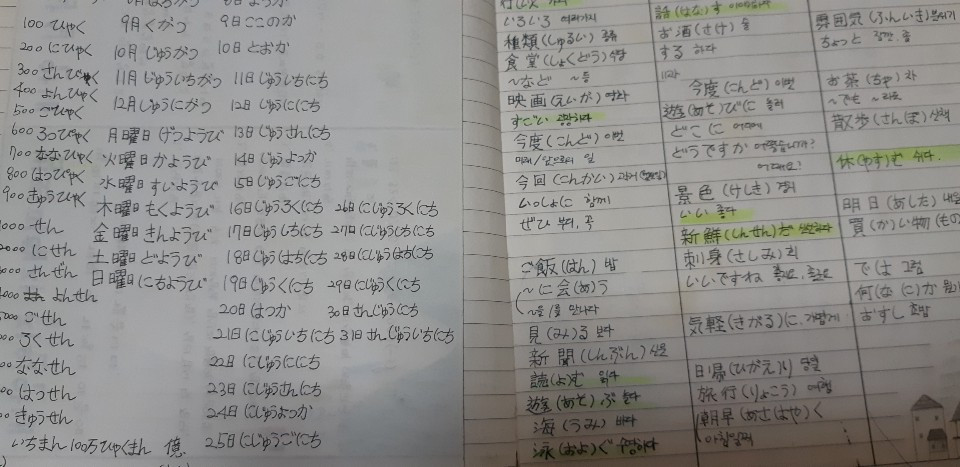 100 ひゃく
200 にひゃく
300 さんびゃく
400 よんひゃく
500 ごひゃく
600 ろっぴゃく
700 ななひゃく
800 はっぴゃく
900 きゅうひゃく
1000 せん
2000 にせん
さんぜん
よんせん
ごせん
ろくせん
ななせん
はっせん
きゅうせん
いちまん 100万 ひゃくまん 億
9月 くがつ
10月 じゅうがつ
11月 じゅういちがつ
12月 じゅうにがつ
月曜日 げつようび
火曜日 かようび
水曜日 すいようび
木曜日 もくようび
金曜日 きんようび
土曜日 どようび
日曜日 にちようび
9日 ここのか
10日 とおか
11日 じゅういちにち
12日 じゅうににち
13日 じゅうさんにち
14日 じゅうよっか
15日 じゅうごにち
16日 じゅうろくにち 26日 にじゅうろくにち
17日 じゅうしちにち 27日 にじゅうしちにち
18日 じゅうはちにち 28日 にじゅうはちにち
19日 じゅうくにち 29日 にじゅうくにち
20日 はつか 30日 さんじゅうにち
21日 にじゅういちにち 31日 さんじゅういちにち
22日 にじゅうににち
23日 にじゅうさんにち
24日 にじゅうよっか
25日 にじゅうごにち
いろいろ 여러가지
種類 (しゅるい) 종류
食堂 (しょくどう) 식당
～など ～등
映画 (えいが) 영화
すごい 굉장하다
今度 (こんど) 이번
今回 (こんかい)
いっしょに 함께
ぜひ 부디, 꼭
ご飯 (はん) 밥
～に会 (あ) う
～을/를 만나다
見 (み) る 보다
新聞 (しんぶん) 신문
読 (よ) む 읽다
遊 (あそ) ぶ 놀다
海 (うみ) 바다
泳 (およ) ぐ 수영하다
話 (はな) す 이야기하다
お酒 (さけ) 술
する 하다
今度 (こんど) 이번
遊 (あそ) びに 놀러
どこに 어디에
どうですか 어떻습니까?
어때요?
景色 (けしき) 경치
いい 좋다
新鮮 (しんせん) だ 신선하다
刺身 (さしみ) 회
いいですね 좋네요, 좋군요
気軽 (きがる) に 가볍게
日帰 (ひがえ) り 당일
旅行 (りょこう) 여행
朝早 (あさはや) く
아침일찍
雰囲気 (ふんいき) 분위기
ちょっと 잠깐, 좀
お茶 (ちゃ) 차
～でも ～라도
散歩 (さんぽ) 산책
休 (やす) む 쉬다
明日 (あした) 내일
買 (か) い物 (もの)
では 그럼
何 (なに) か
おすし 초밥